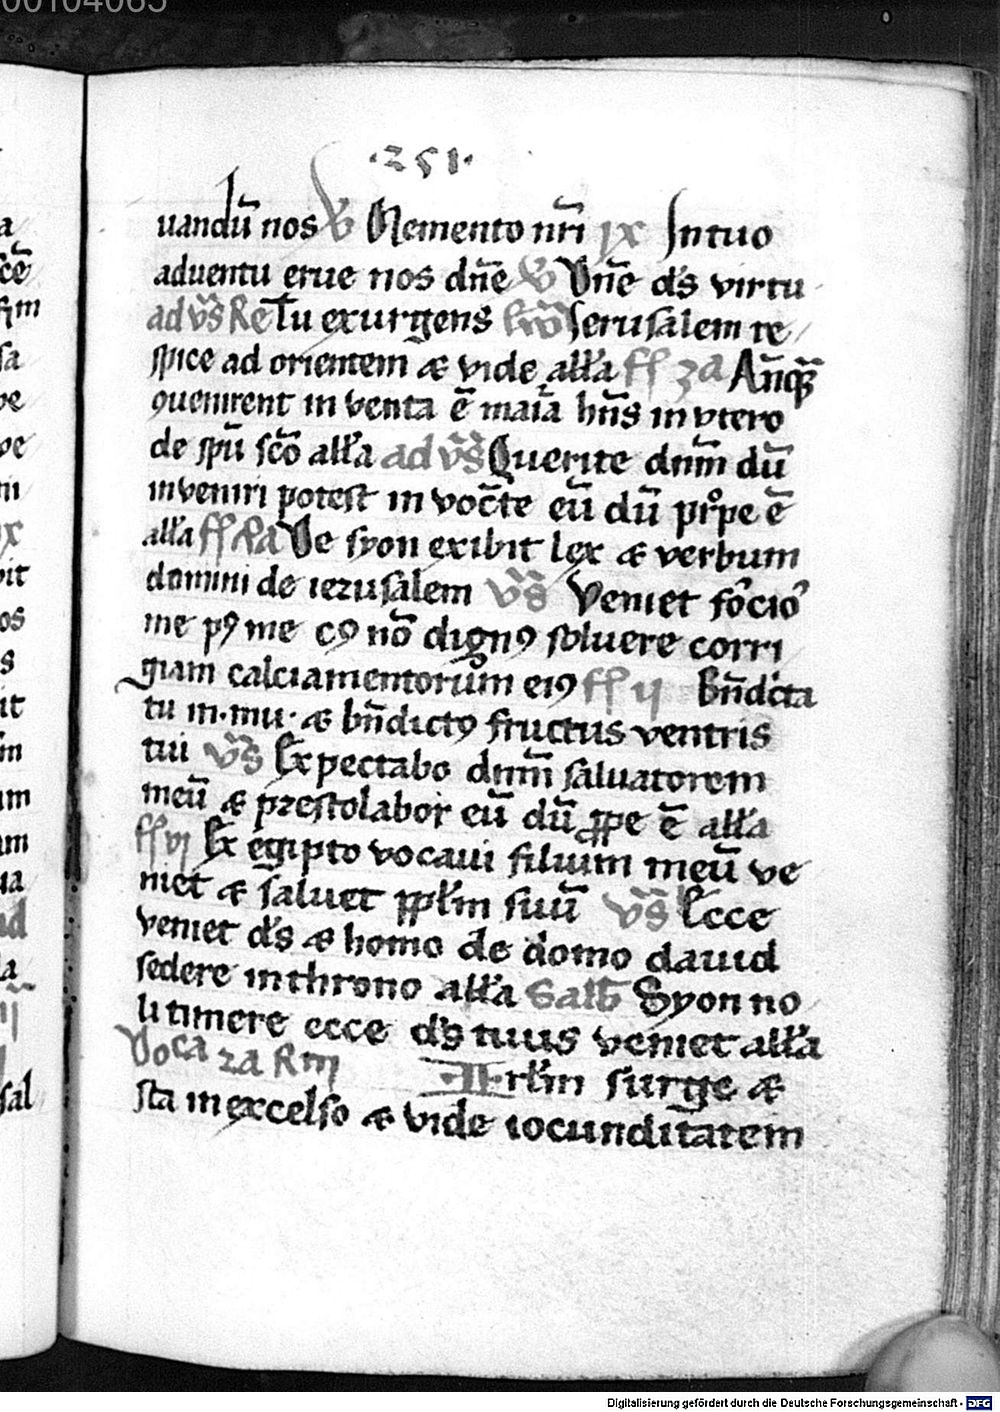 00104065
·251·
uandū nos ꝟ Memento nr̄i ix In tuo
aduentu erue nos dn̄e ꝟ Dn̄e ds̄ virtu
ad vs̄ Re Tu exurgens Ierusalem re
spice ad orientem & vide all'a ff 3a An̄q̄
ꝯuenirent inventa ē maīa hn̄s in vtero
de spū scō all'a ad vs̄ Querite dnm̄ dū
inveniri potest invocāte eū dū prope ē
all'a ff 4a De syon exibit lex & verbum
domini de ierusalem vs̄ Veniet fōcio
me pꝰ me cꝰ nō dignꝰ soluere corri
giam calciamentorum eiꝰ ff ij Bn̄dicta
tu in·mu· & bn̄dictꝰ fructus ventris
tui vs̄ Expectabo dnm̄ saluatorem
meū & prestolabor eū dū ꝓpe ē all'a
ff vj Ex egipto vocaui filium meū ve
niet & saluet ppl'm suū vs̄ Ecce
veniet ds̄ & homo de domo dauid
sedere in throno all'a Sabb Syon no
li timere ecce ds̄ tuus veniet all'a
Do ca 2a R iiij Irl'm surge &
sta in excelso & vide iocunditatem
Digitalisierung gefördert durch die Deutsche Forschungsgemeinschaft - DFG